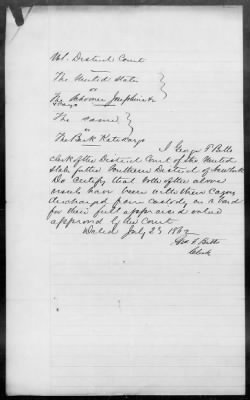 U.S. District Court
The United States
vs
The Schooner Josephine &
Cargo
The same
vs
The Bark Kate & Cargo
I George F Betts
clerk of the District Court of the United
States for the Southern District of New York
Do Certify that both of the above
vessels have been with their Cargoes
discharged from custody on a bond
for their full appraised value
approved by the Court
Dated July 23 1862
Geo F Betts
Clerk